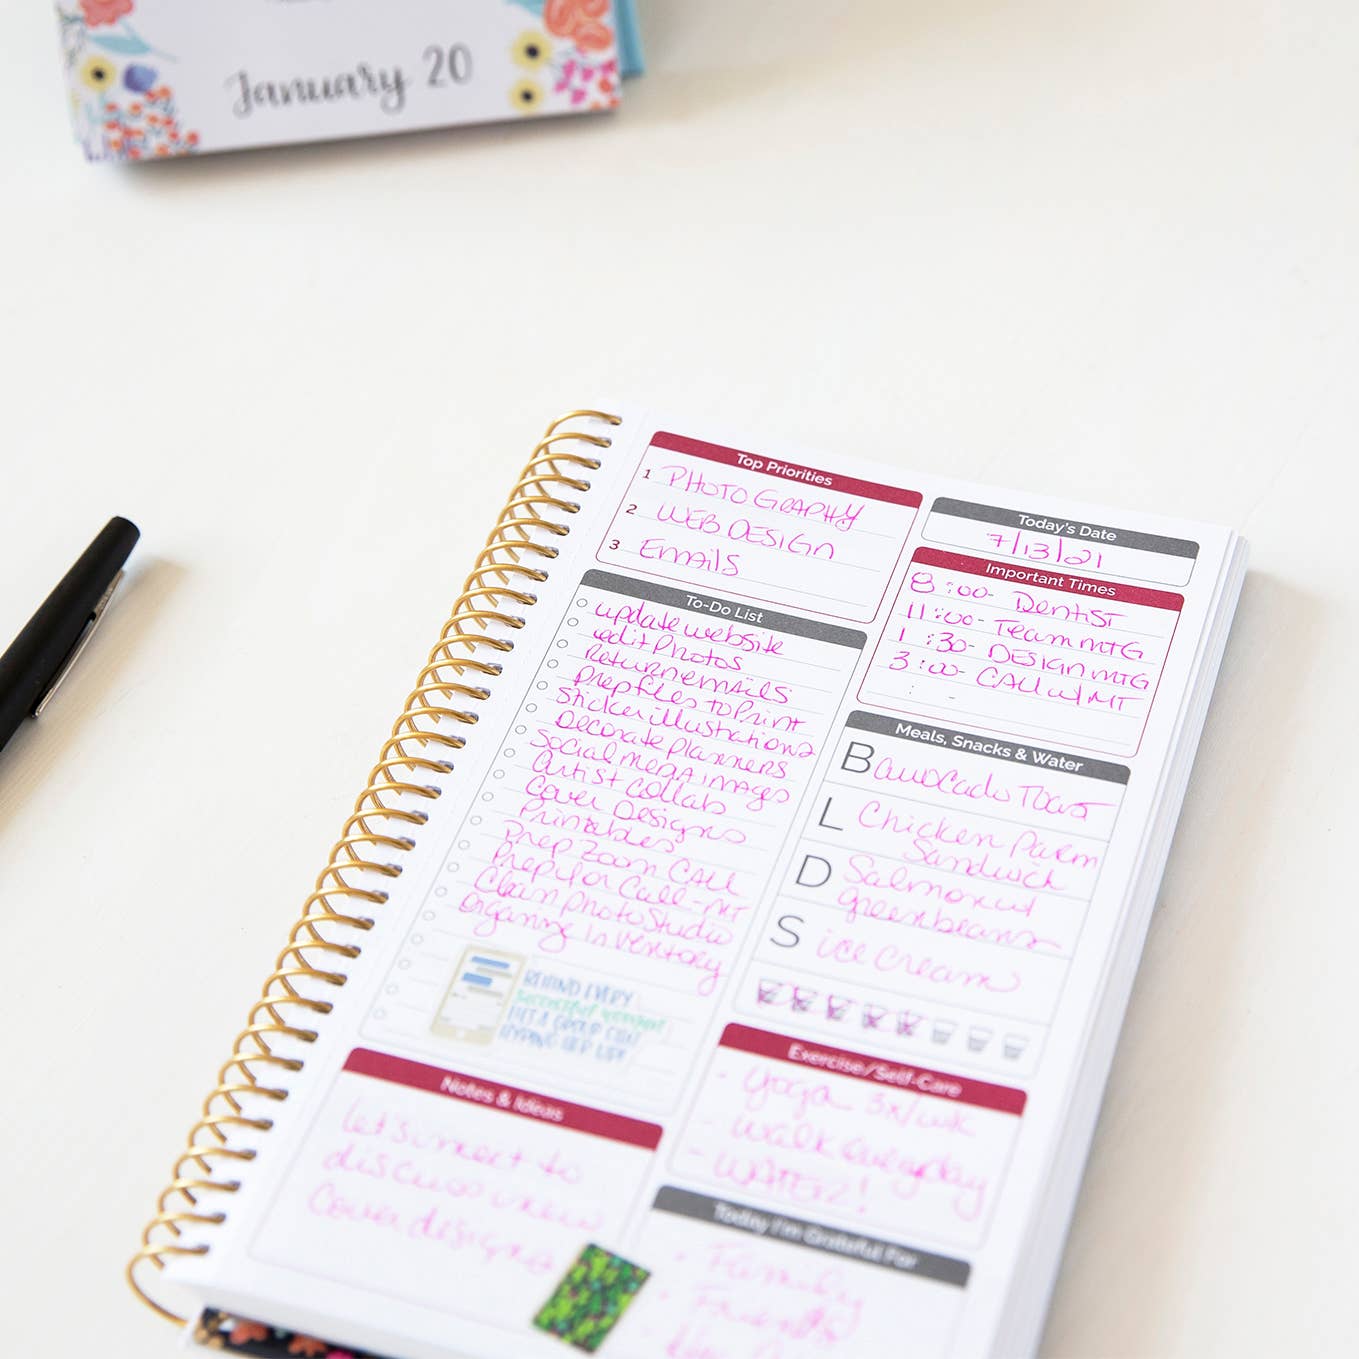 January 20
Top Priorities
1 PHOTOGRAPHY
2 WEB DESIGN
3 Emails
Today's Date
7/13/21
Important Times
8:00- Dentist
11:00- Team MTG
1:30- DESIGN MTG
3:00- CALL w/ MT
: -
To-Do List
update website
edit Photos
Return emails
Prep files to Print
Sticker illustrations
Decorate planners
Social media images
Artist collabs
Cover Designs
Printables
Prep Zoom CALL
Prep for Call-MT
Clean Photo Studio
Organize Inventory
BEHIND EVERY
SUCCESSFUL WOMAN
IS A GROUP CHAT
HYPING HER UP
Meals, Snacks & Water
B avocado Toast
L Chicken Parm
Sandwich
D Salmon w/
greenbeans
S ice cream
Exercise/Self-Care
- Yoga 3x/wk
- walk everyday
- WATER!
Notes & Ideas
Let's meet to
discuss new
cover designs
Today I'm Grateful For
- Family
- Friends